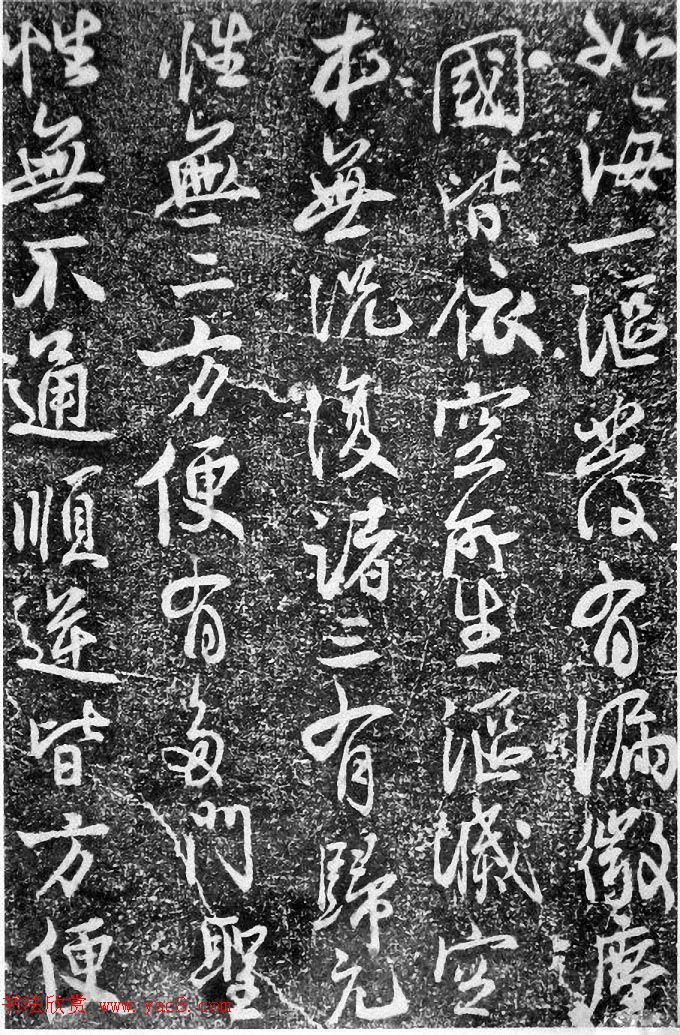 如海一漚發有漏微塵
國皆依空所生漚滅空
本無況復諸三有歸元
性無二方便有多門聖
性無不通順逆皆方便
书法欣赏 www.yac8.com